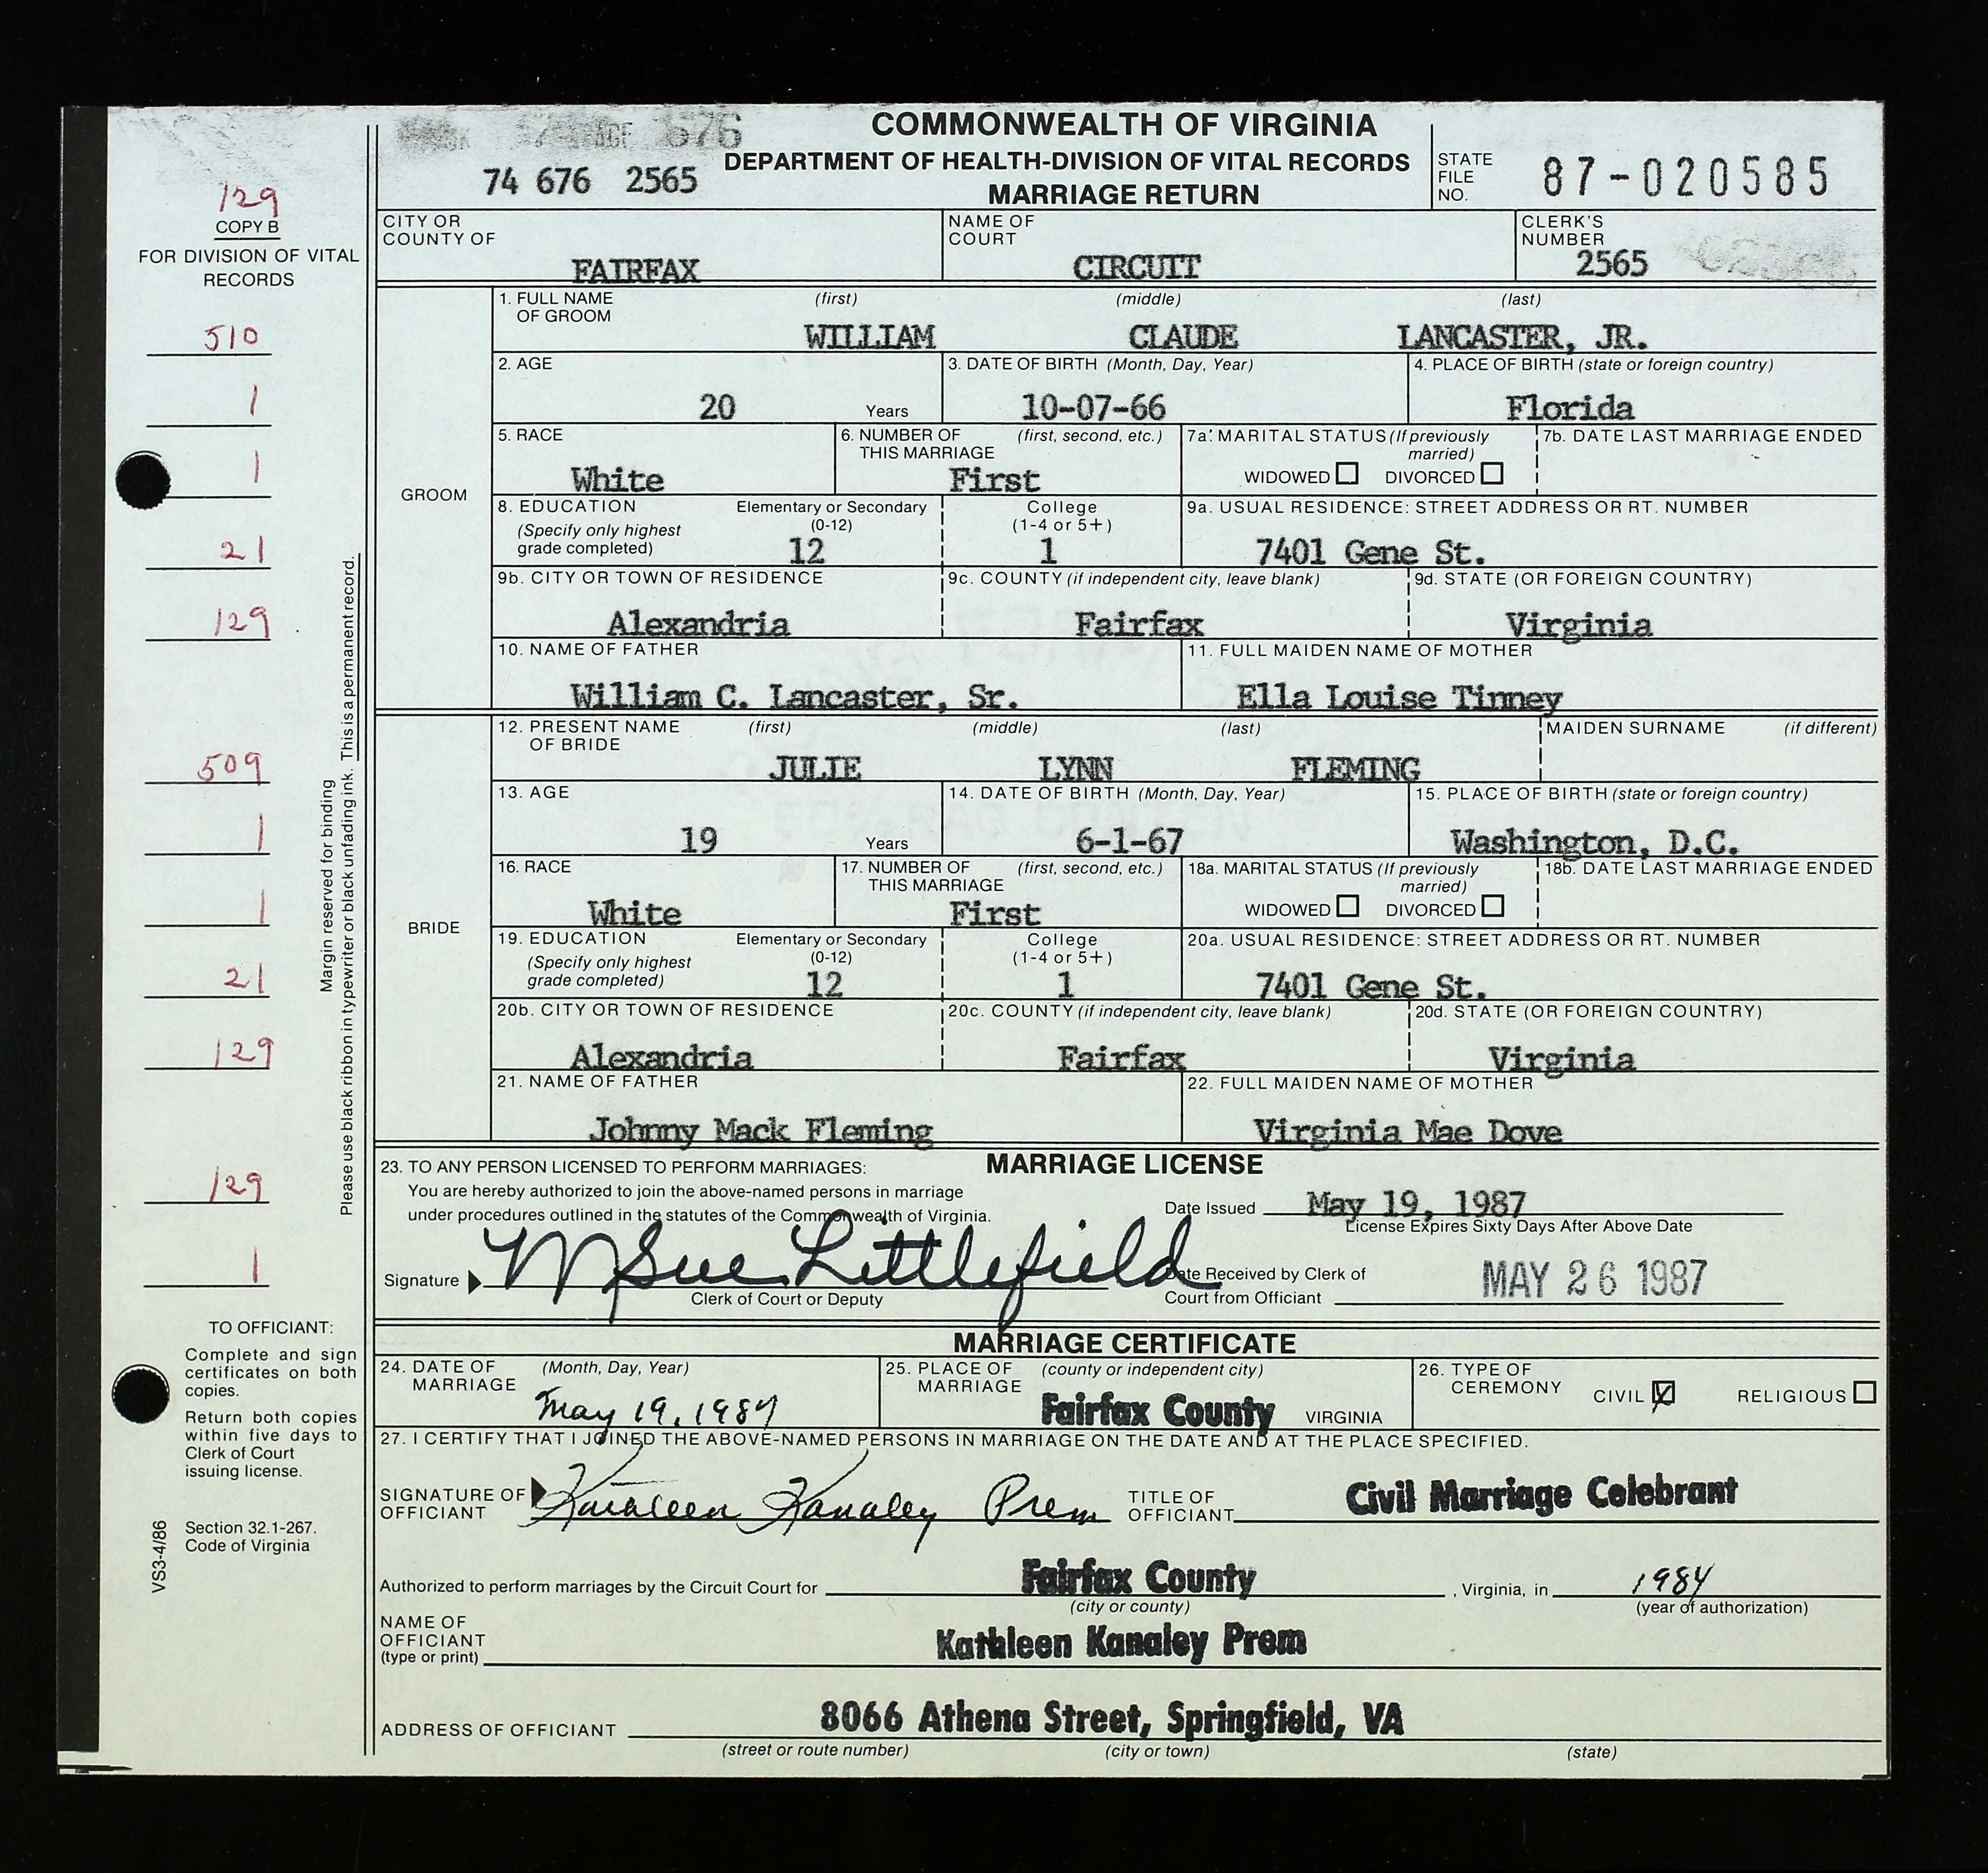 676
COMMONWEALTH OF VIRGINIA
74 676 2565 DEPARTMENT OF HEALTH-DIVISION OF VITAL RECORDS
MARRIAGE RETURN
STATE FILE NO. 87-020585
129
COPY B
FOR DIVISION OF VITAL
RECORDS
510
1
1
21
129
509
1
1
21
129
129
1
Margin reserved for binding
Please use black ribbon in typewriter or black unfading ink. This is a permanent record.
TO OFFICIANT:
Complete and sign
certificates on both
copies.
Return both copies
within five days to
Clerk of Court
issuing license.
Section 32.1-267.
Code of Virginia
VS3-4/86
CITY OR COUNTY OF FAIRFAX
NAME OF COURT CIRCUIT
CLERK'S NUMBER 2565
GROOM
1. FULL NAME OF GROOM (first) (middle) (last)
WILLIAM CLAUDE LANCASTER, JR.
2. AGE 20 Years
3. DATE OF BIRTH (Month, Day, Year) 10-07-66
4. PLACE OF BIRTH (state or foreign country) Florida
5. RACE White
6. NUMBER OF THIS MARRIAGE (first, second, etc.) First
7a. MARITAL STATUS (If previously married) WIDOWED DIVORCED
7b. DATE LAST MARRIAGE ENDED
8. EDUCATION (Specify only highest grade completed) Elementary or Secondary (0-12) 12 College (1-4 or 5+) 1
9a. USUAL RESIDENCE: STREET ADDRESS OR RT. NUMBER 7401 Gene St.
9b. CITY OR TOWN OF RESIDENCE Alexandria
9c. COUNTY (if independent city, leave blank) Fairfax
9d. STATE (OR FOREIGN COUNTRY) Virginia
10. NAME OF FATHER William C. Lancaster, Sr.
11. FULL MAIDEN NAME OF MOTHER Ella Louise Tinney
BRIDE
12. PRESENT NAME OF BRIDE (first) (middle) (last) MAIDEN SURNAME (if different)
JULIE LYNN FLEMING
13. AGE 19 Years
14. DATE OF BIRTH (Month, Day, Year) 6-1-67
15. PLACE OF BIRTH (state or foreign country) Washington, D.C.
16. RACE White
17. NUMBER OF THIS MARRIAGE (first, second, etc.) First
18a. MARITAL STATUS (If previously married) WIDOWED DIVORCED
18b. DATE LAST MARRIAGE ENDED
19. EDUCATION (Specify only highest grade completed) Elementary or Secondary (0-12) 12 College (1-4 or 5+) 1
20a. USUAL RESIDENCE: STREET ADDRESS OR RT. NUMBER 7401 Gene St.
20b. CITY OR TOWN OF RESIDENCE Alexandria
20c. COUNTY (if independent city, leave blank) Fairfax
20d. STATE (OR FOREIGN COUNTRY) Virginia
21. NAME OF FATHER Johnny Mack Fleming
22. FULL MAIDEN NAME OF MOTHER Virginia Mae Dove
23. TO ANY PERSON LICENSED TO PERFORM MARRIAGES: MARRIAGE LICENSE
You are hereby authorized to join the above-named persons in marriage
under procedures outlined in the statutes of the Commonwealth of Virginia.
Date Issued May 19, 1987
License Expires Sixty Days After Above Date
Signature M Sue Littlefield
Clerk of Court or Deputy
Date Received by Clerk of
Court from Officiant MAY 26 1987
MARRIAGE CERTIFICATE
24. DATE OF MARRIAGE (Month, Day, Year) May 19, 1987
25. PLACE OF MARRIAGE (county or independent city) Fairfax County VIRGINIA
26. TYPE OF CEREMONY CIVIL RELIGIOUS
27. I CERTIFY THAT I JOINED THE ABOVE-NAMED PERSONS IN MARRIAGE ON THE DATE AND AT THE PLACE SPECIFIED.
SIGNATURE OF OFFICIANT Kathleen Kanaley Prem
TITLE OF OFFICIANT Civil Marriage Celebrant
Authorized to perform marriages by the Circuit Court for Fairfax County, Virginia, in 1984
(city or county) (year of authorization)
NAME OF OFFICIANT (type or print) Kathleen Kanaley Prem
ADDRESS OF OFFICIANT 8066 Athena Street, Springfield, VA
(street or route number) (city or town) (state)